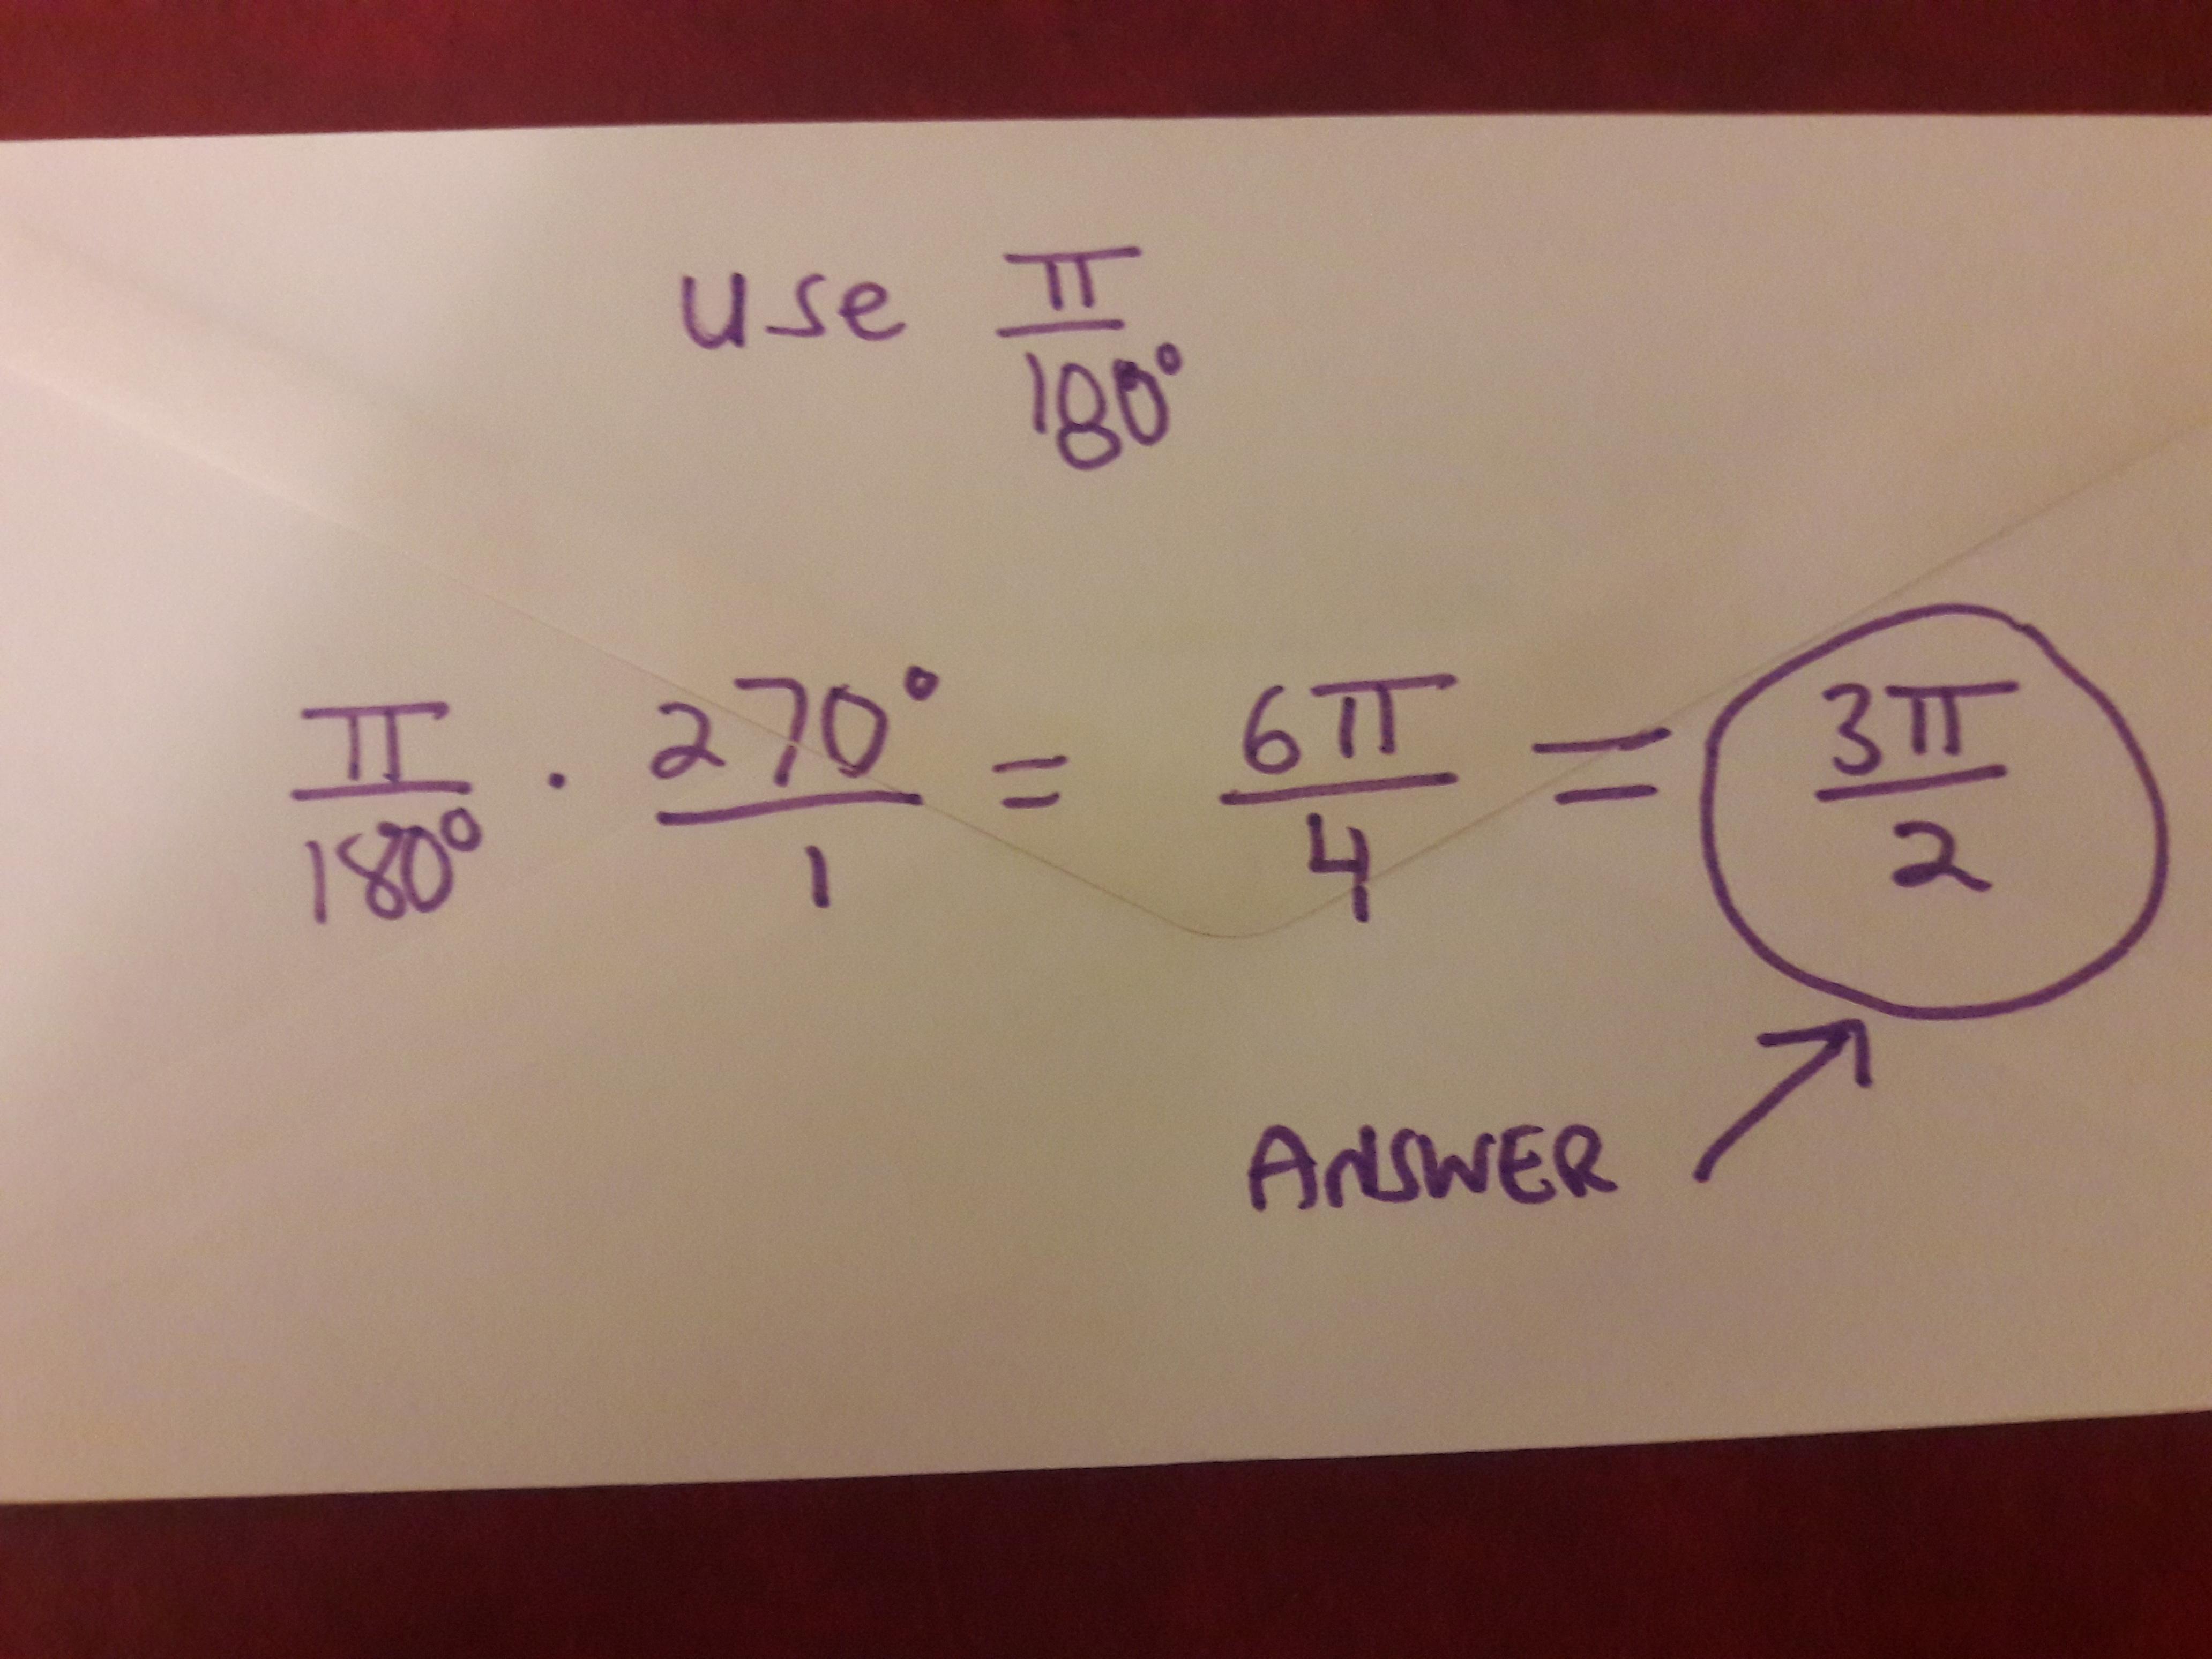 use π/180°
π/180° · 270°/1 = 6π/4 = 3π/2
ANSWER